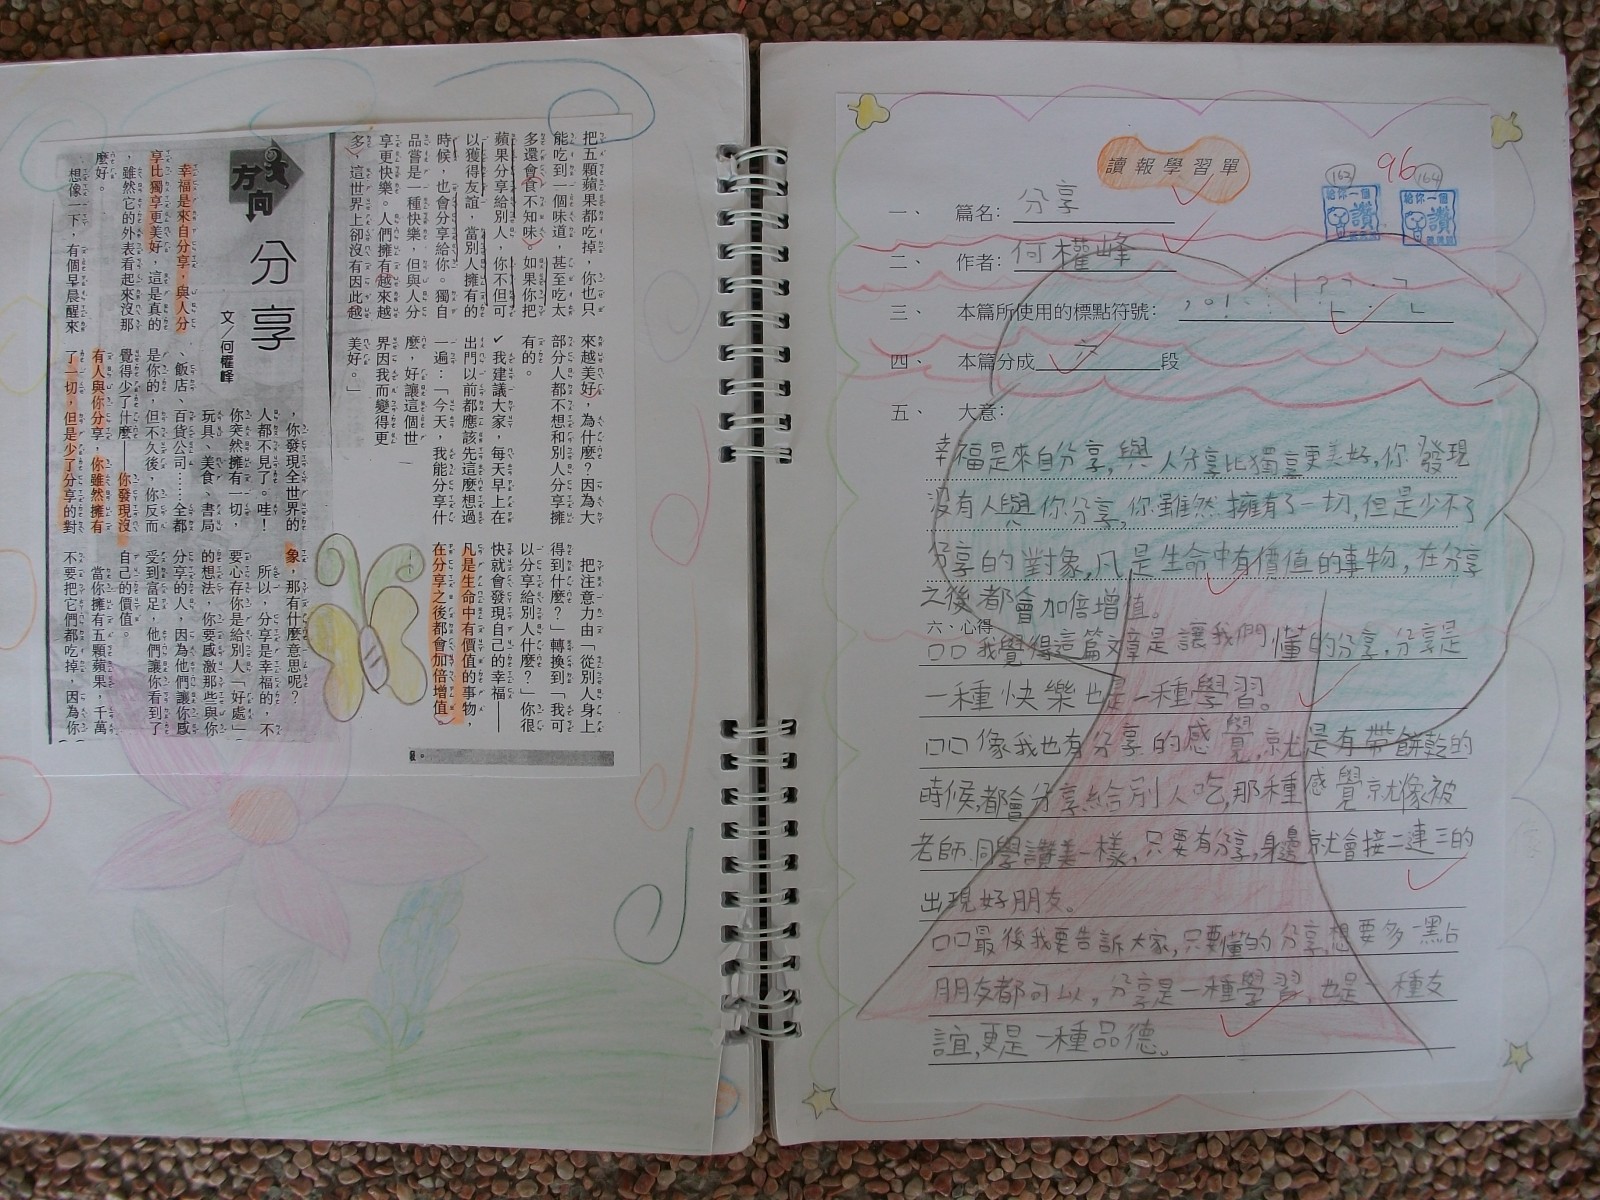 方向
分享
文／何權峰
幸福是來自分享，與人分
享比獨享更美好，這是真的
，雖然它的外表看起來沒那
麼好。
想像一下，有個早晨醒來
，你發現全世界的
人都不見了。哇！
你突然擁有一切，
玩具、美食、書局
、飯店、百貨公司……全都
是你的，但不久後，你反而
覺得少了什麼——你發現沒
有人與你分享，你雖然擁有
了一切，但是少了分享的對
象，那有什麼意思呢？
所以，分享是幸福的，不
要心存你是給別人「好處」
的想法，你要感激那些與你
分享的人，因為他們讓你感
受到富足，他們讓你看到了
自己的價值。
當你擁有五顆蘋果，千萬
不要把它們都吃掉，因為你
把五顆蘋果都吃掉，你也只
能吃到一個味道，甚至吃太
多還會食不知味。如果你把
蘋果分享給別人，你不但可
以獲得友誼，當別人擁有的
時候，也會分享給你。獨自
品嘗是一種快樂，但與人分
享更快樂。人們擁有越來越
多，這世界上卻沒有因此越
來越美好，為什麼？因為大
部分人都不想和別人分享擁
有的。
我建議大家，每天早上在
出門以前都應該先這麼想過
一遍：「今天，我能分享什
麼，好讓這個世
界因我而變得更
美好。」
把注意力由「從別人身上
得到什麼？」轉換到「我可
以分享給別人什麼？」你很
快就會發現自己的幸福——
凡是生命中有價值的事物，
在分享之後都會加倍增值。
讀報學習單
96
162 164
給你一個讚
給你一個讚
一、 篇名：分享
二、 作者：何權峰
三、 本篇所使用的標點符號：，。！：、——？…「」
四、 本篇分成六段
五、 大意：
幸福是來自分享，與人分享比獨享更美好，你發現
沒有人與你分享，你雖然擁有了一切，但是少不了
分享的對象，凡是生命中有價值的事物，在分享
之後都會加倍增值。
六、心得
□□我覺得這篇文章是讓我們懂的分享，分享是
一種快樂也是一種學習。
□□像我也有分享的感覺，就是有帶餅乾的
時候，都會分享給別人吃，那種感覺就像被
老師、同學讚美一樣，只要有分享，身邊就會接二連三的
出現好朋友。
□□最後我要告訴大家，只要懂的分享，想要多一點
朋友都可以，分享是一種學習，也是一種友
誼，更是一種品德。